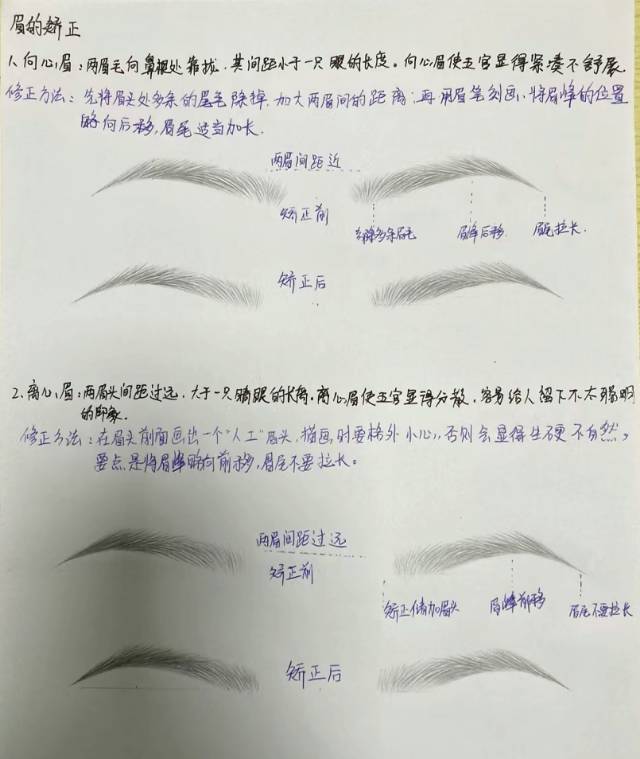 眉的矫正
1、向心眉：两眉毛向鼻根处靠拢．其间距小于一只眼的长度。向心眉使五官显得紧凑不舒展
修正方法：先将眉头处多余的眉毛除掉，加大两眉间的距离；再用眉笔刻画，将眉峰的位置
略向后移，眉尾适当加长．
两眉间距近
矫正前
去除多余眉毛
眉峰后移
眉尾拉长．
矫正后
2、离心眉：两眉头间距过远，大于一只睛眼的长，离心眉使五官显得分散，容易给人留下不太聪明
的印象．
修正方法：在眉头前面画出一个"人工"眉头，描画时要格外小心，否则会显得生硬不自然，
要点是将眉峰略向前移，眉尾不要拉长。
两眉间距过远
矫正前
矫正加眉头
眉峰前移
眉尾不要拉长
矫正后